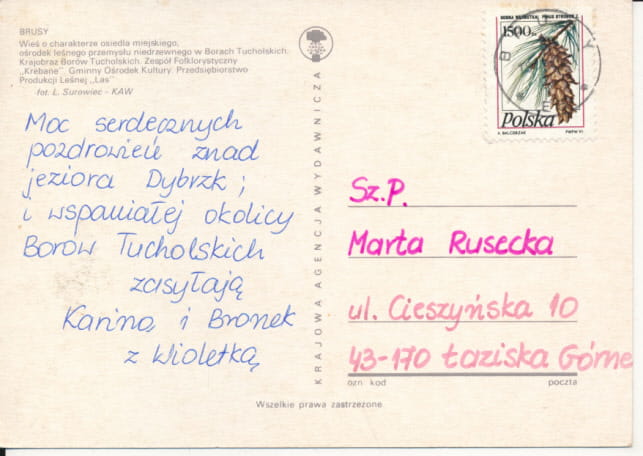 BRUSY
Wieś o charakterze osiedla miejskiego,
ośrodek leśnego przemysłu niedrzewnego w Borach Tucholskich.
Krajobraz Borów Tucholskich. Zespół Folklorystyczny
„Krebane". Gminny Ośrodek Kultury. Przedsiębiorstwo
Produkcji Leśnej „Las"
fot. Ł. Surowiec - KAW
Moc serdecznych
pozdrowień znad
jeziora Dybrzk;
i wspaniałej okolicy
Borów Tucholskich
zasyłają
Karina i Bronek
z Wioletką
KRAJOWA AGENCJA WYDAWNICZA
1500zł
Polska
Sz.P.
Marta Rusecka
ul. Cieszyńska 10
43-170 Łaziska Górne
ozn kod
poczta
Wszelkie prawa zastrzeżone